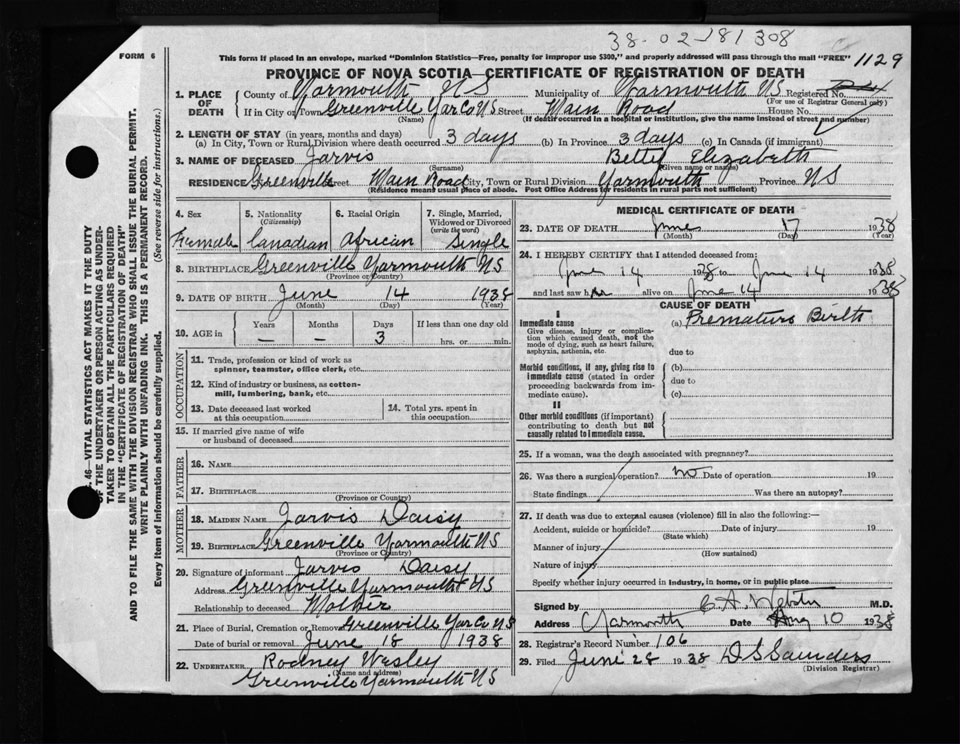 38-02-181308
FORM 6
This form if placed in an envelope, marked "Dominion Statistics—Free, penalty for improper use $300," and properly addressed will pass through the mail "FREE" 1129
PROVINCE OF NOVA SCOTIA—CERTIFICATE OF REGISTRATION OF DEATH
1. PLACE OF DEATH
County of Yarmouth NS Municipality of Yarmouth NS Registered No.
(For use of Registrar General only)
If in City or Town Greenville Yar Co NS Street Main Road House No.
(Name) (If death occurred in a hospital or institution, give the name instead of street and number)
2. LENGTH OF STAY (in years, months and days)
(a) In City, Town or Rural Division where death occurred 3 days (b) In Province 3 days (c) In Canada (if immigrant)
3. NAME OF DECEASED Jarvis Betty Elizabeth
(Surname) (Given name or names)
RESIDENCE Greenville Street Main Road City, Town or Rural Division Yarmouth Province NS
(Residence means usual place of abode. Post Office Address for residents in rural parts not sufficient)
4. Sex 5. Nationality (Citizenship) 6. Racial Origin 7. Single, Married, Widowed or Divorced (write the word)
Female Canadian African Single
8. BIRTHPLACE Greenville Yarmouth NS
(Province or Country)
9. DATE OF BIRTH June 14 1938
(Month) (Day) (Year)
10. AGE in Years Months Days If less than one day old
— — 3 hrs. or min.
OCCUPATION
11. Trade, profession or kind of work as spinner, teamster, office clerk, etc.
12. Kind of industry or business, as cotton-mill, lumbering, bank, etc.
13. Date deceased last worked at this occupation
14. Total yrs. spent in this occupation
15. If married give name of wife or husband of deceased
FATHER
16. NAME
17. BIRTHPLACE
(Province or Country)
MOTHER
18. MAIDEN NAME Jarvis Daisy
19. BIRTHPLACE Greenville Yarmouth NS
(Province or Country)
20. Signature of informant Jarvis Daisy
Address Greenville Yarmouth NS
Relationship to deceased Mother
21. Place of Burial, Cremation or Removal Greenville Yar Co NS
Date of burial or removal June 18 1938
22. UNDERTAKER Rodney Wesley
(Name and address)
Greenville Yarmouth NS
MEDICAL CERTIFICATE OF DEATH
23. DATE OF DEATH June 17 1938
(Month) (Day) (Year)
24. I HEREBY CERTIFY that I attended deceased from:
June 14 1938 to June 14 1938
and last saw her alive on June 14 1938
CAUSE OF DEATH
I
Immediate cause (a) Premature Birth
Give disease, injury or complication which caused death, not the mode of dying, such as heart failure, asphyxia, asthenia, etc.
due to
Morbid conditions, if any, giving rise to immediate cause (stated in order proceeding backwards from immediate cause).
(b)
due to
(c)
II
Other morbid conditions (if important) contributing to death but not causally related to immediate cause.
25. If a woman, was the death associated with pregnancy?
26. Was there a surgical operation? no Date of operation 19
State findings Was there an autopsy?
27. If death was due to external causes (violence) fill in also the following:—
Accident, suicide or homicide? Date of injury 19
(State which)
Manner of injury
(How sustained)
Nature of injury
Specify whether injury occurred in industry, in home, or in public place
Signed by C. A. Webster M.D.
Address Yarmouth Date Aug 10 1938
28. Registrar's Record Number 106
29. Filed June 28 1938 D S Saunders
(Division Registrar)
46—VITAL STATISTICS ACT MAKES IT THE DUTY
OF THE UNDERTAKER OR PERSON ACTING AS UNDER-
TAKER TO OBTAIN ALL THE PARTICULARS REQUIRED
IN THE "CERTIFICATE OF REGISTRATION OF DEATH"
AND TO FILE THE SAME WITH THE DIVISION REGISTRAR WHO SHALL ISSUE THE BURIAL PERMIT.
WRITE PLAINLY WITH UNFADING INK. THIS IS A PERMANENT RECORD.
Every item of information should be carefully supplied. (See reverse side for instructions.)